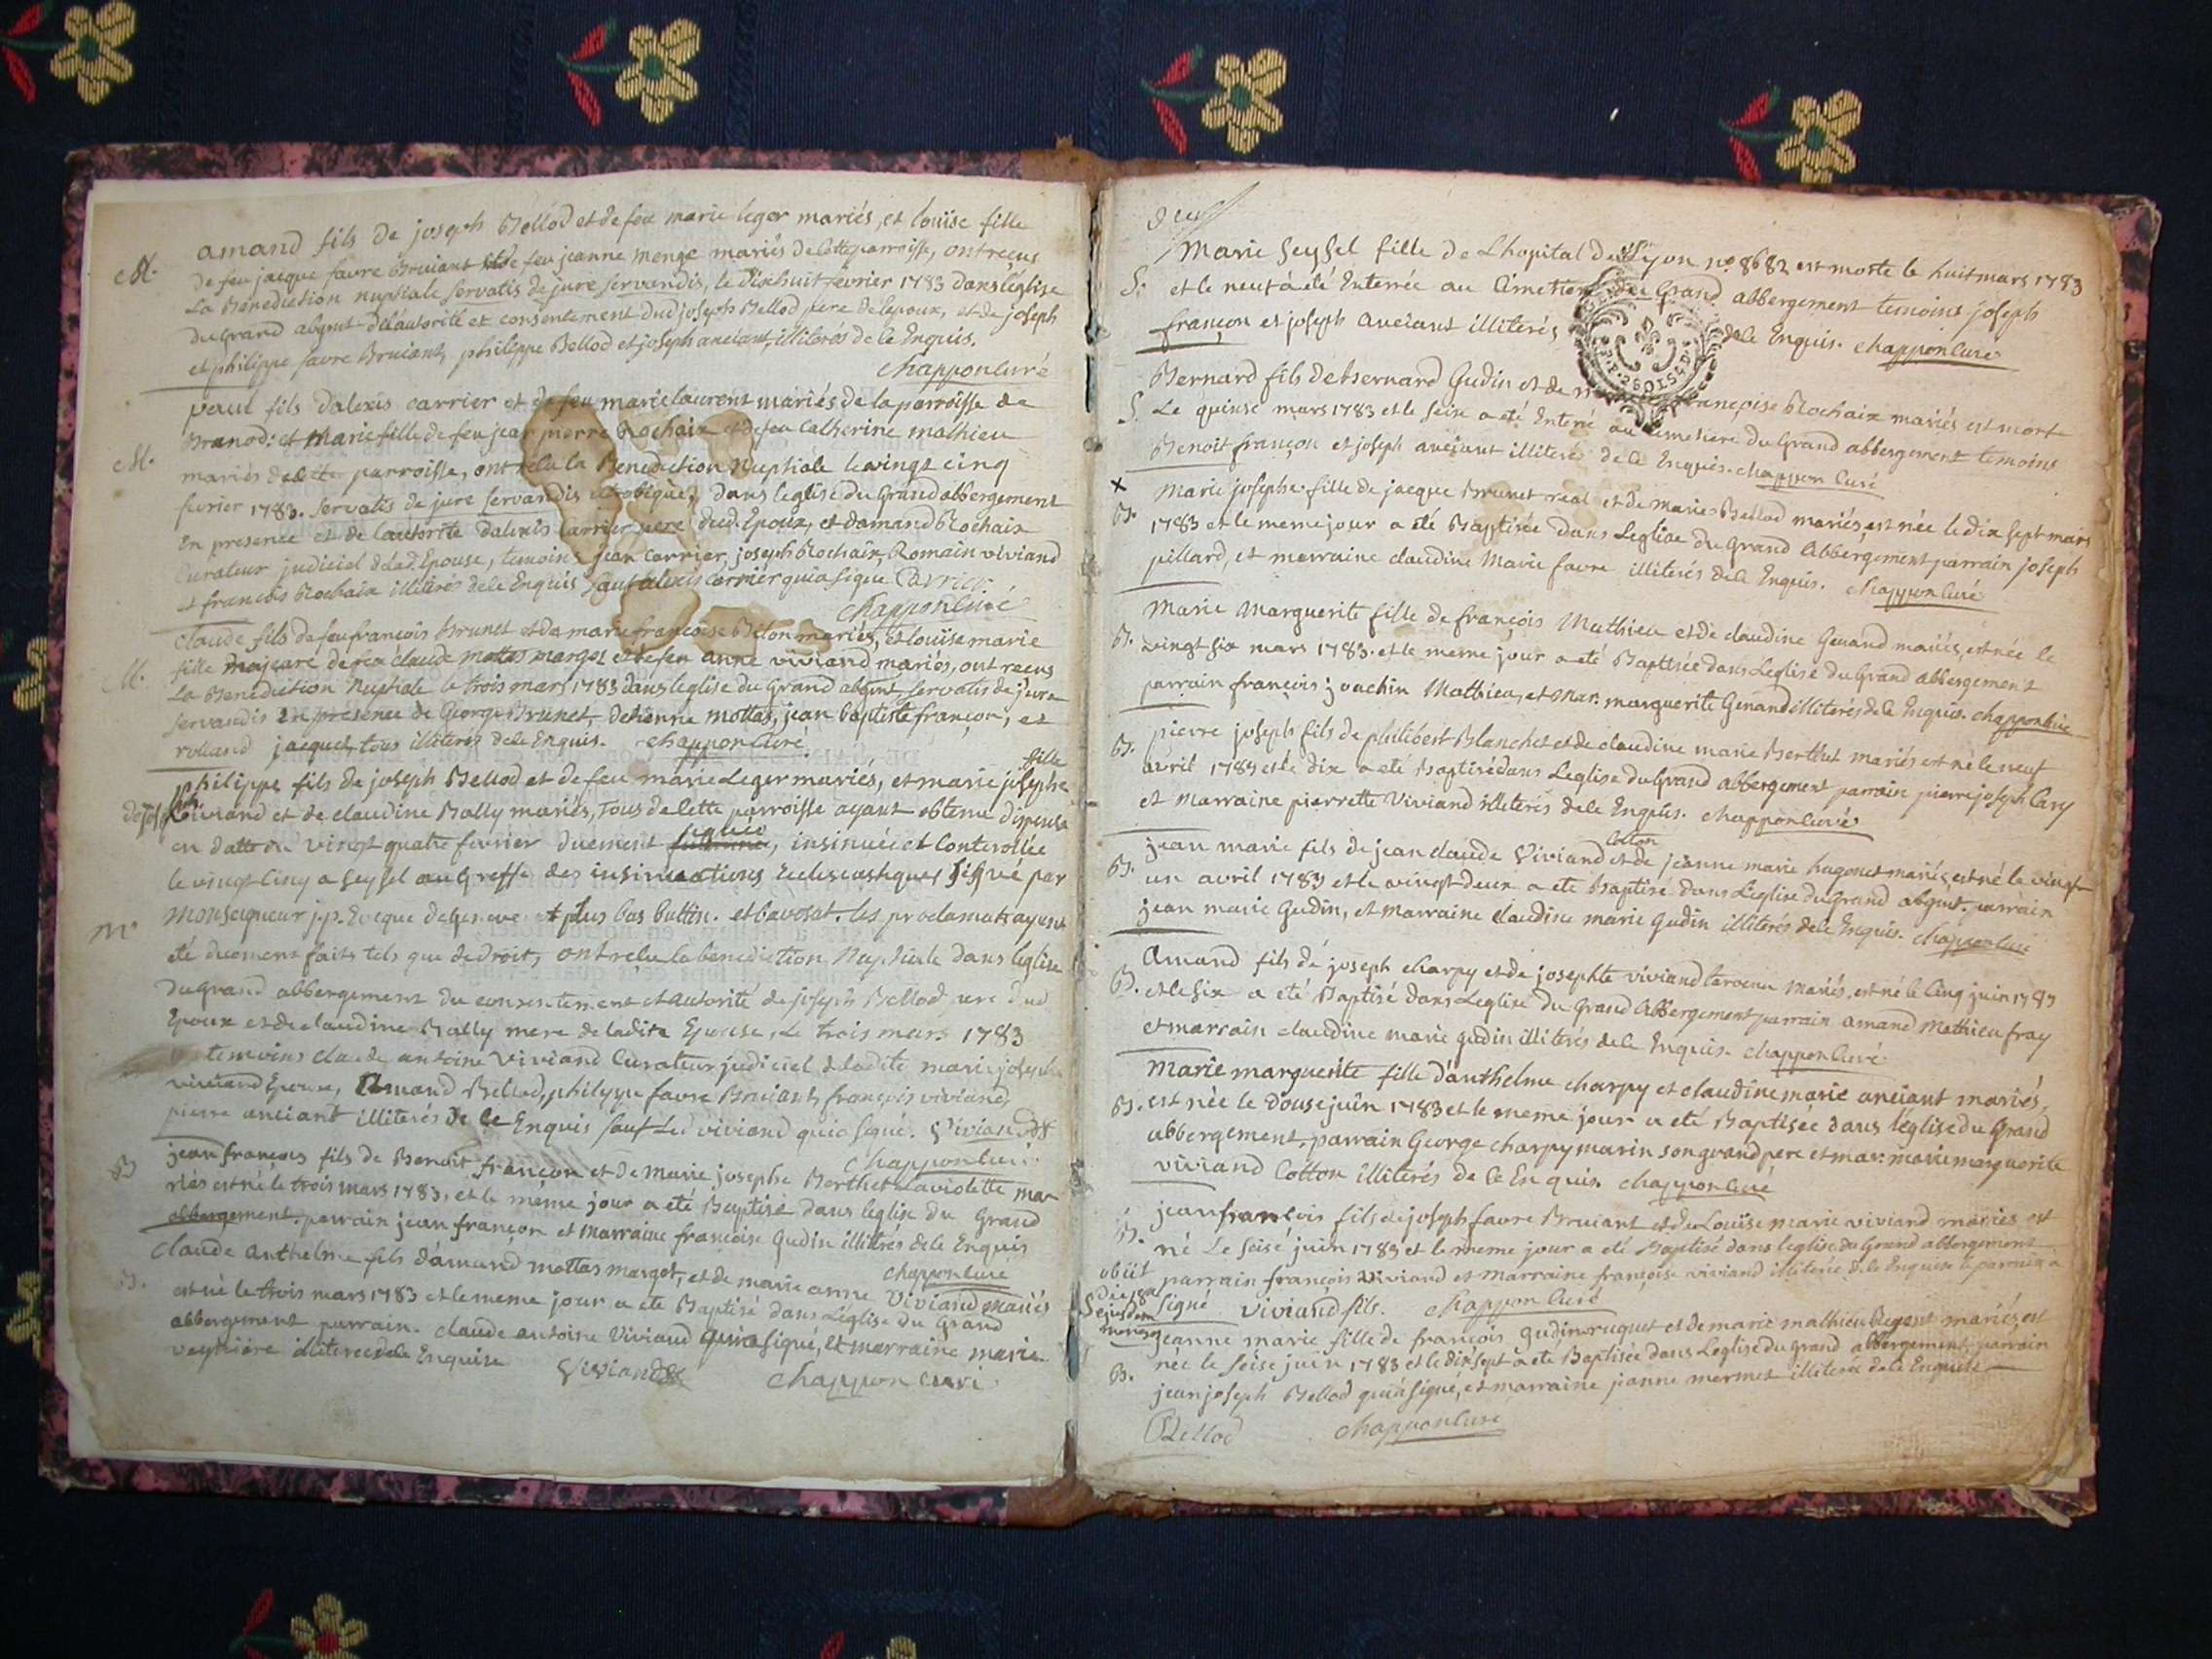 amand fils de joseph Bellod et de feu marie leger mariés, et louise fille
M. de feu jacque favre Bruiant et de feu jeanne menge mariés de cette parroisse, ont reçus
La Benediction nuptiale servatis de jure servandis, le dixhuit fevrier 1783 dans l'eglise
du Grand abgmt de l'autorité et consentement dud joseph Bellod pere de l'epoux, et de joseph
et philippe favre Bruiant, philippe Bellod et joseph anciant, illiterés de ce Enquis.
chappon Curé
paul fils dalexis carrier et de feu marie laurent mariés de la parroisse de
Branod: et Marie fille de feu jean pierre Rochaix et de feu Catherine mathieu
M. mariés de cette parroisse, ont relu la Benediction Nuptiale le vingt cinq
fevrier 1783. servatis de jure servandis dans leglise du Grand abbergement
En presence et de l'autorité dalexis Carrier pere dud. Epoux, et damand Rochaix
Curateur judiciel de Lad. Epouse, temoins jean Carrier, joseph Rochaix, Romain viviand
et francois Rochaix illiterés de ce Enquis sauf alexis carrier qui a signe Carrier
chappon Curé
claude fils de feu francois Brunet et de marie francoise Beton mariés, et louise marie
fille majeure de feu claude mottas margot et de feu anne viviand mariés, ont recus
M. La Benediction Nuptiale le trois mars 1783 dans leglise du Grand abgmt, servatis de jure
servandis En presence de George Brunet, detienne mottas, jean baptiste françon, et
rolland jacquet tous illiterés de ce Enquis. chappon Curé
fille
philippe fils de joseph Bellod et de feu marie Leger mariés, et marie josephe
de joseph viviand et de claudine Bally mariés, Tous de cette parroisse ayant obtenu dispense
signée
en datte du vingt quatre fevrier duement , insinuée et Conterollée
le vingt Cinq a seyssel au Greffe des insinuations Ecclesiastiques signé par
Monseigneur j.p. Eveque de Geneve et plus bas buttin. et bavosat. les proclamats ayant
m. été duement faits tels que de droit, ont relu la benediction Nuptiale dans leglise
du grand abbergement du consentement et autorité de joseph Bellod pere dud
Epoux et de claudine Bally mere de ladite Epouse, Le trois mars 1783
temoins claude antoine viviand Curateur judiciel de ladite marie josephe
viviand Epouse, amand Bellod, philippe favre Bruiant, françois viviand,
pierre anciant illiterés de ce Enquis sauf Led viviand qui a signé. Viviand
chappon Curé
B jean françois fils de Benoit françon et de Marie josephe Berthet Laviolette ma-
riés est né le trois mars 1783, et le même jour a eté Baptisé dans leglise du Grand
abbergement. parrain jean françon et marraine francoise Gudin illiterés de ce Enquis
chappon Curé
claude anthelme fils d'amand mottas margot, et de marie anne viviand mariés
B. est né le trois mars 1783 et le meme jour a eté Baptisé dans L'eglise du Grand
abbergement parrain. claude antoine Viviand qui a signé, et marraine marie
illiteree de ce Enquise
Viviand chappon curé
deux
Marie Seyssel fille de Lhopital de Lyon no. 8682 est morte le huit mars 1783
S. et le neuf a été Enterrée au Cimetiere du Grand abbergement temoins joseph
françon et joseph anciant illiterés de ce Enquis. chappon Curé
Bernard fils de Bernard Gudin et de françoise Rochaix mariés est mort
S. Le quinse mars 1783 et le seise a eté Enterré au Cimetiere du Grand abbergement temoins
Benoit françon et joseph anciant illiterés de ce Enquis. chappon Curé
x Marie josephe fille de jacque Brunet real et de marie Bellod mariés, est née le dix sept mars
B. 1783 et le meme jour a eté Baptisée dans Leglise du Grand Abbergement parrain joseph
pillard, et marraine claudine Marie favre illiterés de ce Enquis. chappon Curé
Marie Marguerite fille de françois Mathieu et de claudine Genand mariés, est née le
B. vingt six mars 1783. et le meme jour a eté Baptisée dans Leglise du Grand abbergement
parrain françois joachin Mathieu, et mar. marguerite Genand illiterés de ce Enquis. chappon Curé
pierre joseph fils de philibert Blanchet et de claudine marie Berthet mariés est né le neuf
B. avril 1783 et le dix a eté Baptisé dans Leglise du Grand abbergement parrain pierre joseph Cary
et Marraine pierrette Viviand illiterés de ce Enquis. chappon Curé
Cotton
jean marie fils de jean claude Viviand et de jeanne marie hugonet mariés, est né le vingt
B. un avril 1783 et le vingt deux a eté Baptisé dans L'eglise du Grand abgmt. parrain
jean marie Gudin, et Marraine claudine marie Gudin illiterés de ce Enquis. chappon Curé
Amand fils de joseph charpy et de josephte viviand mariés, est né le Cinq juin 1783
B. et le six a eté Baptisé dans Leglise du Grand Abbergement parrain amand Mathieu fray
et marrain claudine marie gudin illiterés de ce Enquis. chappon Curé
Marie marguerite fille d'anthelme charpy et claudine marie anciant mariés,
B. est née le douse juin 1783 et le meme jour a eté Baptisée dans l'église du Grand
abbergement, parrain George charpy marin son grand pere et mar. marie marguerite
viviand Cotton illiterés de ce Enquis. chappon Curé
jean françois fils de joseph favre Bruiant et de Louise marie viviand mariés est
B. né Le seise juin 1783 et le meme jour a eté Baptisé dans leglise du Grand abbergement
obiit parrain françois viviand et marraine françoise viviand illiterée de ce Enquise le parrain a
die 18a signé Viviand fils. chappon Curé
S ejusdem
mensis jeanne marie fille de françois Gudin ruguet et de marie mathieu Regent mariés, est
B. née le seise juin 1783 et le dix sept a eté Baptisée dans Leglise du Grand abbergement, parrain
jean joseph Bellod qui a signé, et marraine jeanne mermet illiterée de ce Enquise
Bellod chappon Curé